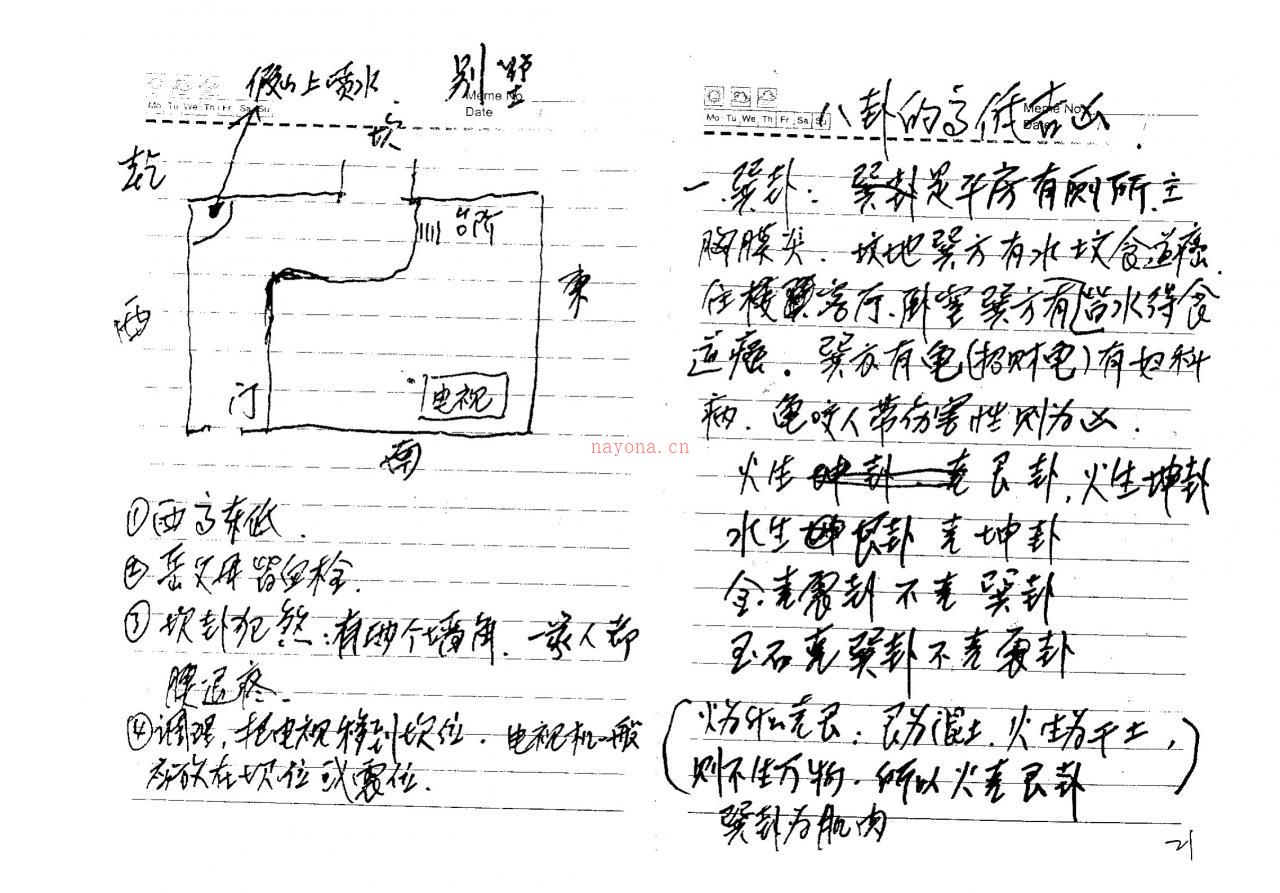 假山上喷水.
别墅
Mo Tu We Th Fr Sa Su
Meme No.
Date
坎
乾
台所
西
东
门
电视
南
①西高东低.
②岳父母皆血栓.
③坎卦犯煞:有两个墙角.一家人都
腰退疼.
④调理,把电视移到坎位.电视机一般
都放在坎位或震位.
Mo Tu We Th Fr Sa Su
Meme No.
Date
八卦的高低吉凶.
一.巽卦:巽卦是平房有厕所.主
胸膜炎.坟地巽方有水坟食道癌.
住楼客厅.卧室巽方有水得食
道癌.巽方有龟(招财龟)有妇科
病.龟咬人带伤害性则为凶.
火生 克艮卦,火生坤卦
水生艮卦克坤卦
金克震卦不克巽卦
玉石克巽卦不克震卦
(火为什么克艮:艮为湿土.火生为干土,
则不生万物.所以火克艮卦)
巽卦为肌肉
21
nayona.cn